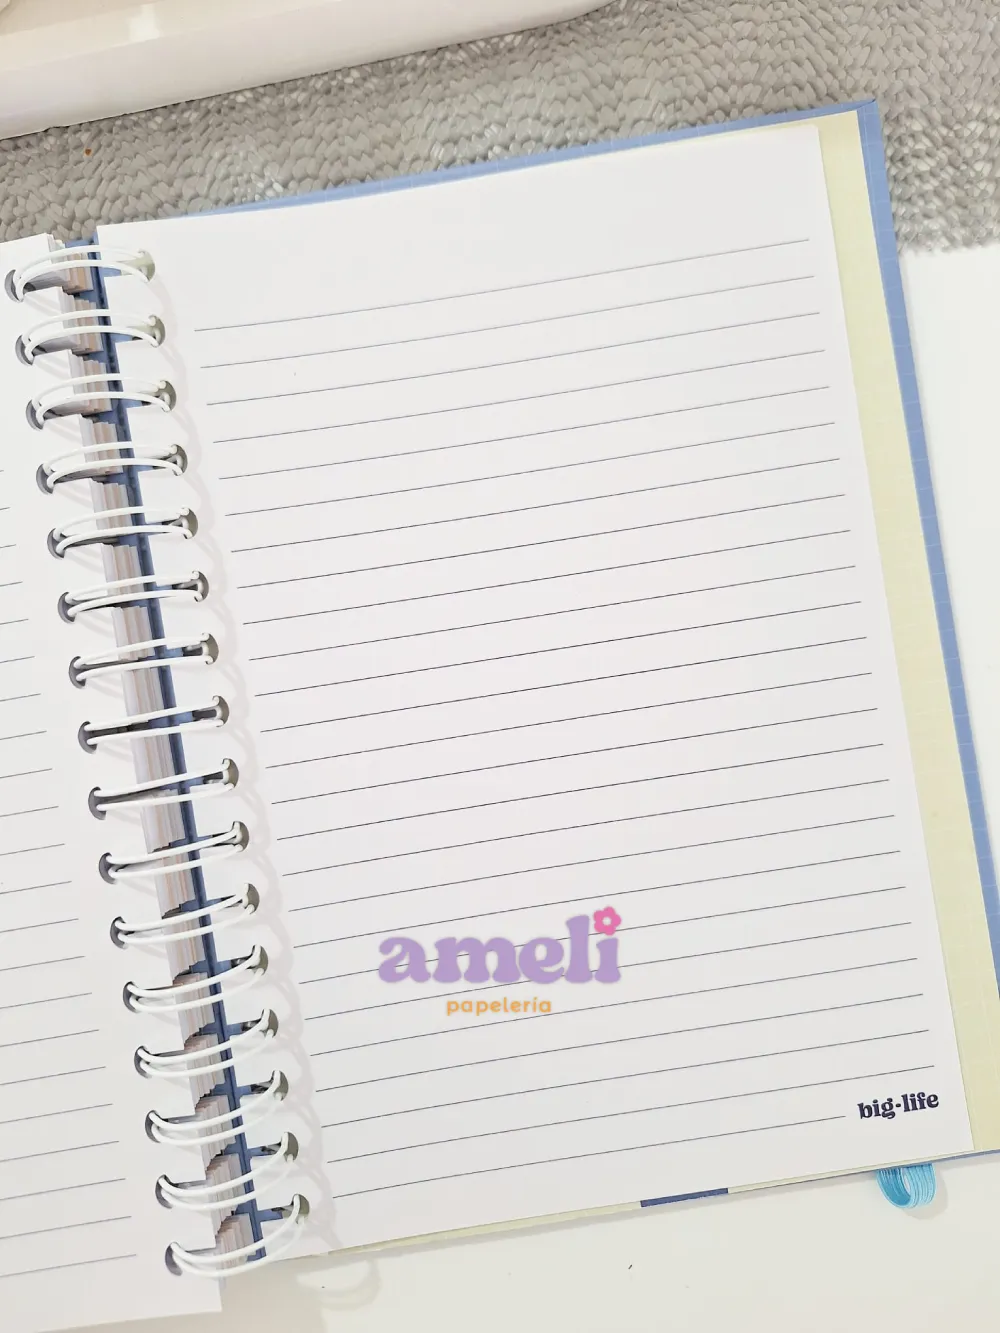 ameli
papelería
big·life